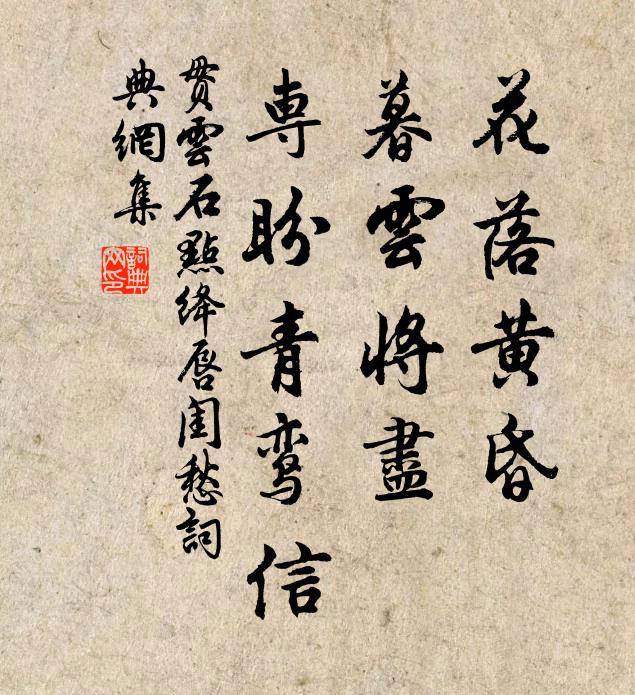 花落黄昏
暮雲將盡
専盼青鸾信
贯雲石點绛唇闺愁詞
典網集
詞典
网印